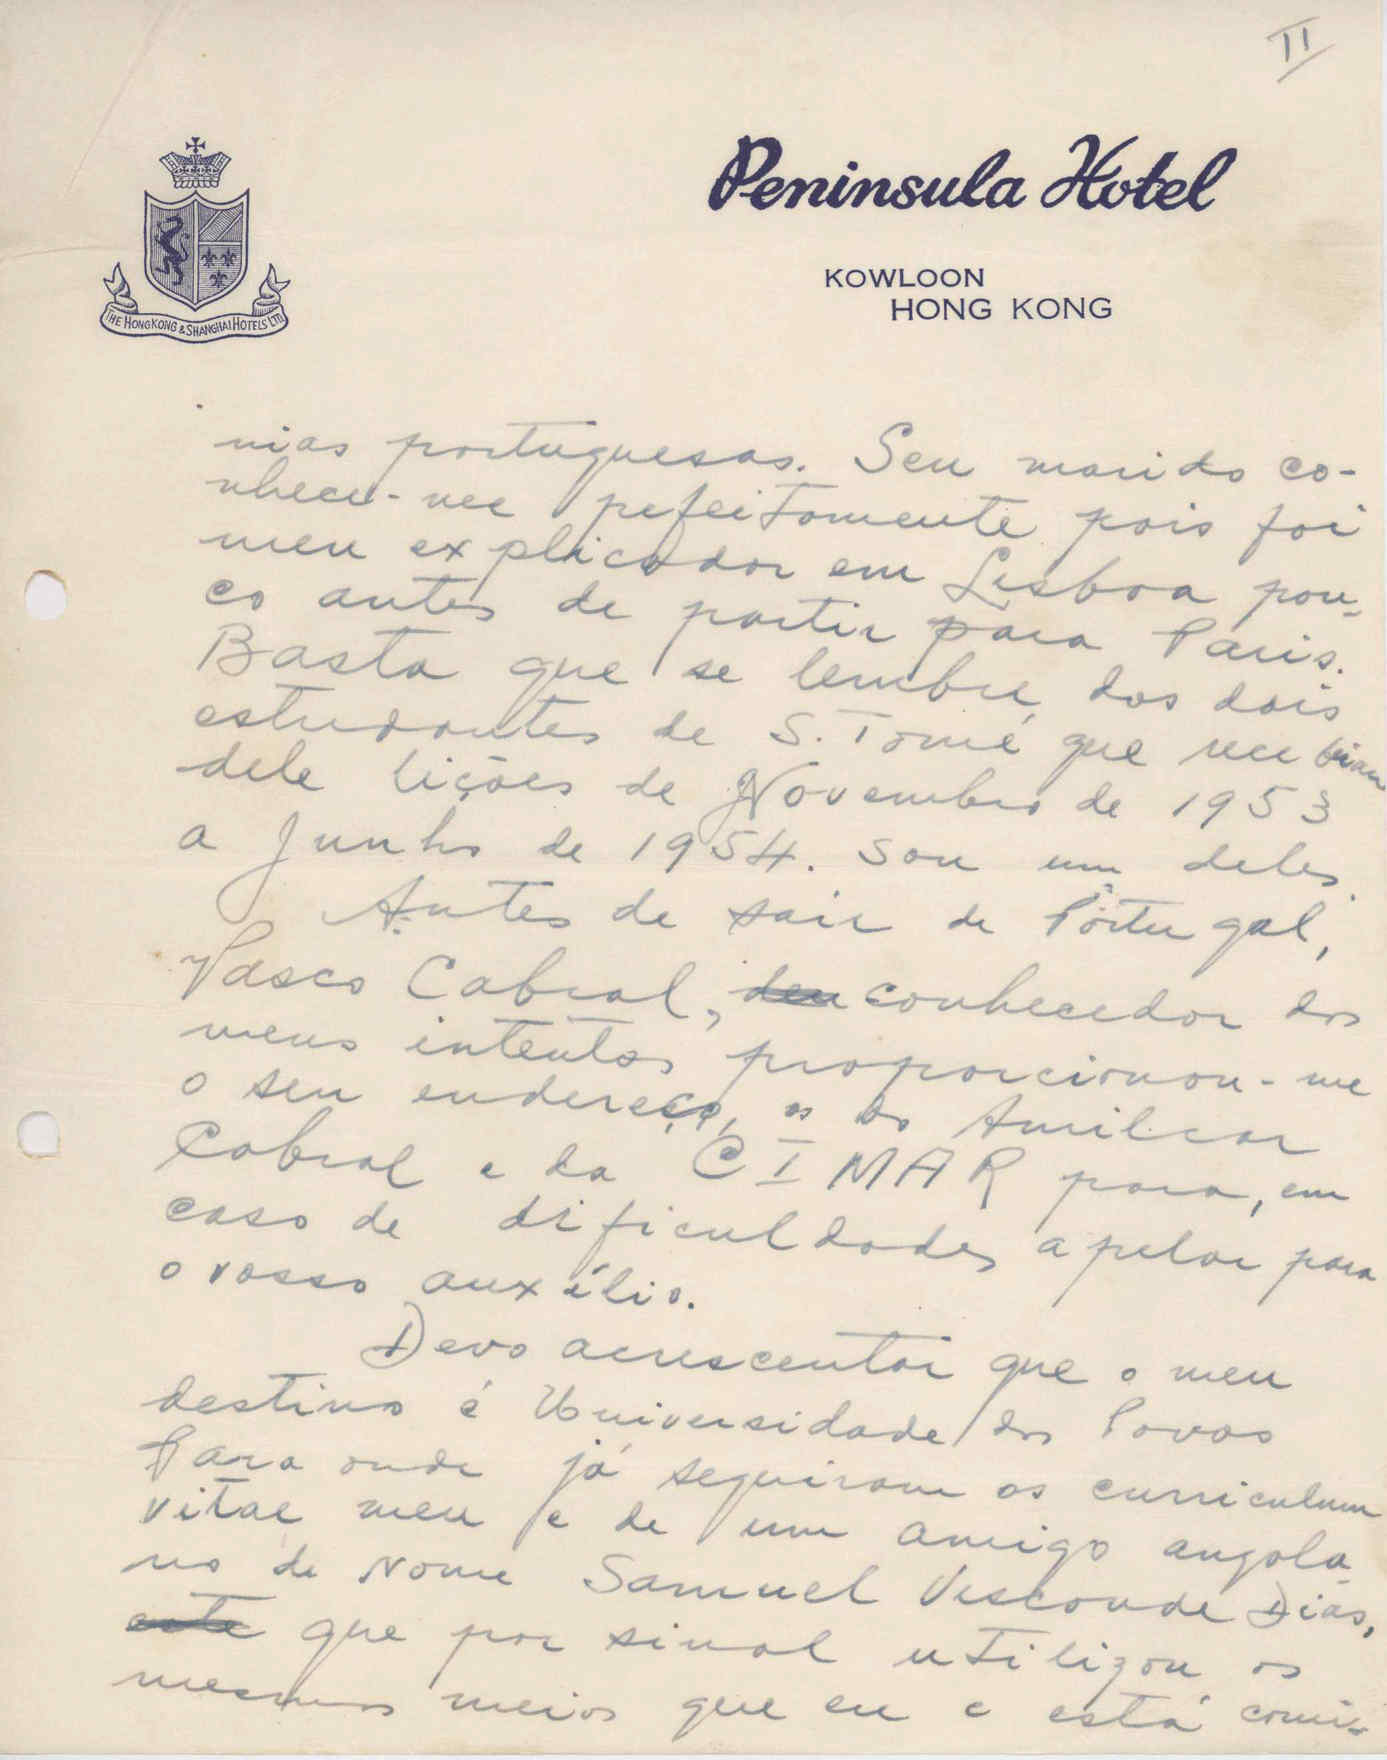 II
Peninsula Hotel
KOWLOON
HONG KONG
THE HONGKONG & SHANGHAI HOTELS LTD
nias portuguesas. Seu marido co-
nheceu-me pefeitamente pois foi
meu explicador em Lisboa pou-
co antes de partir para Paris.
Basta que se lembre dos dois
estudantes de S. Tomé que recebiam
dele lições de Novembro de 1953
a Junho de 1954. Sou um deles.
Antes de sair de Portugal,
Vasco Cabral, deu conhecedor dos
meus intentos proporcionou-me
o seu endereço, o do Amilcar
Cabral e da CIMAR para, em
caso de dificuldades apelar para
o vosso auxílio.
Devo acrescentar que o meu
destino é Universidade dos Povos
Para onde já seguiram os curriculum
vitae meu e de um amigo angola-
no de Nome Samuel Visconde Dias,
este que por sinal utilizou os
mesmos meios que eu e está comi-